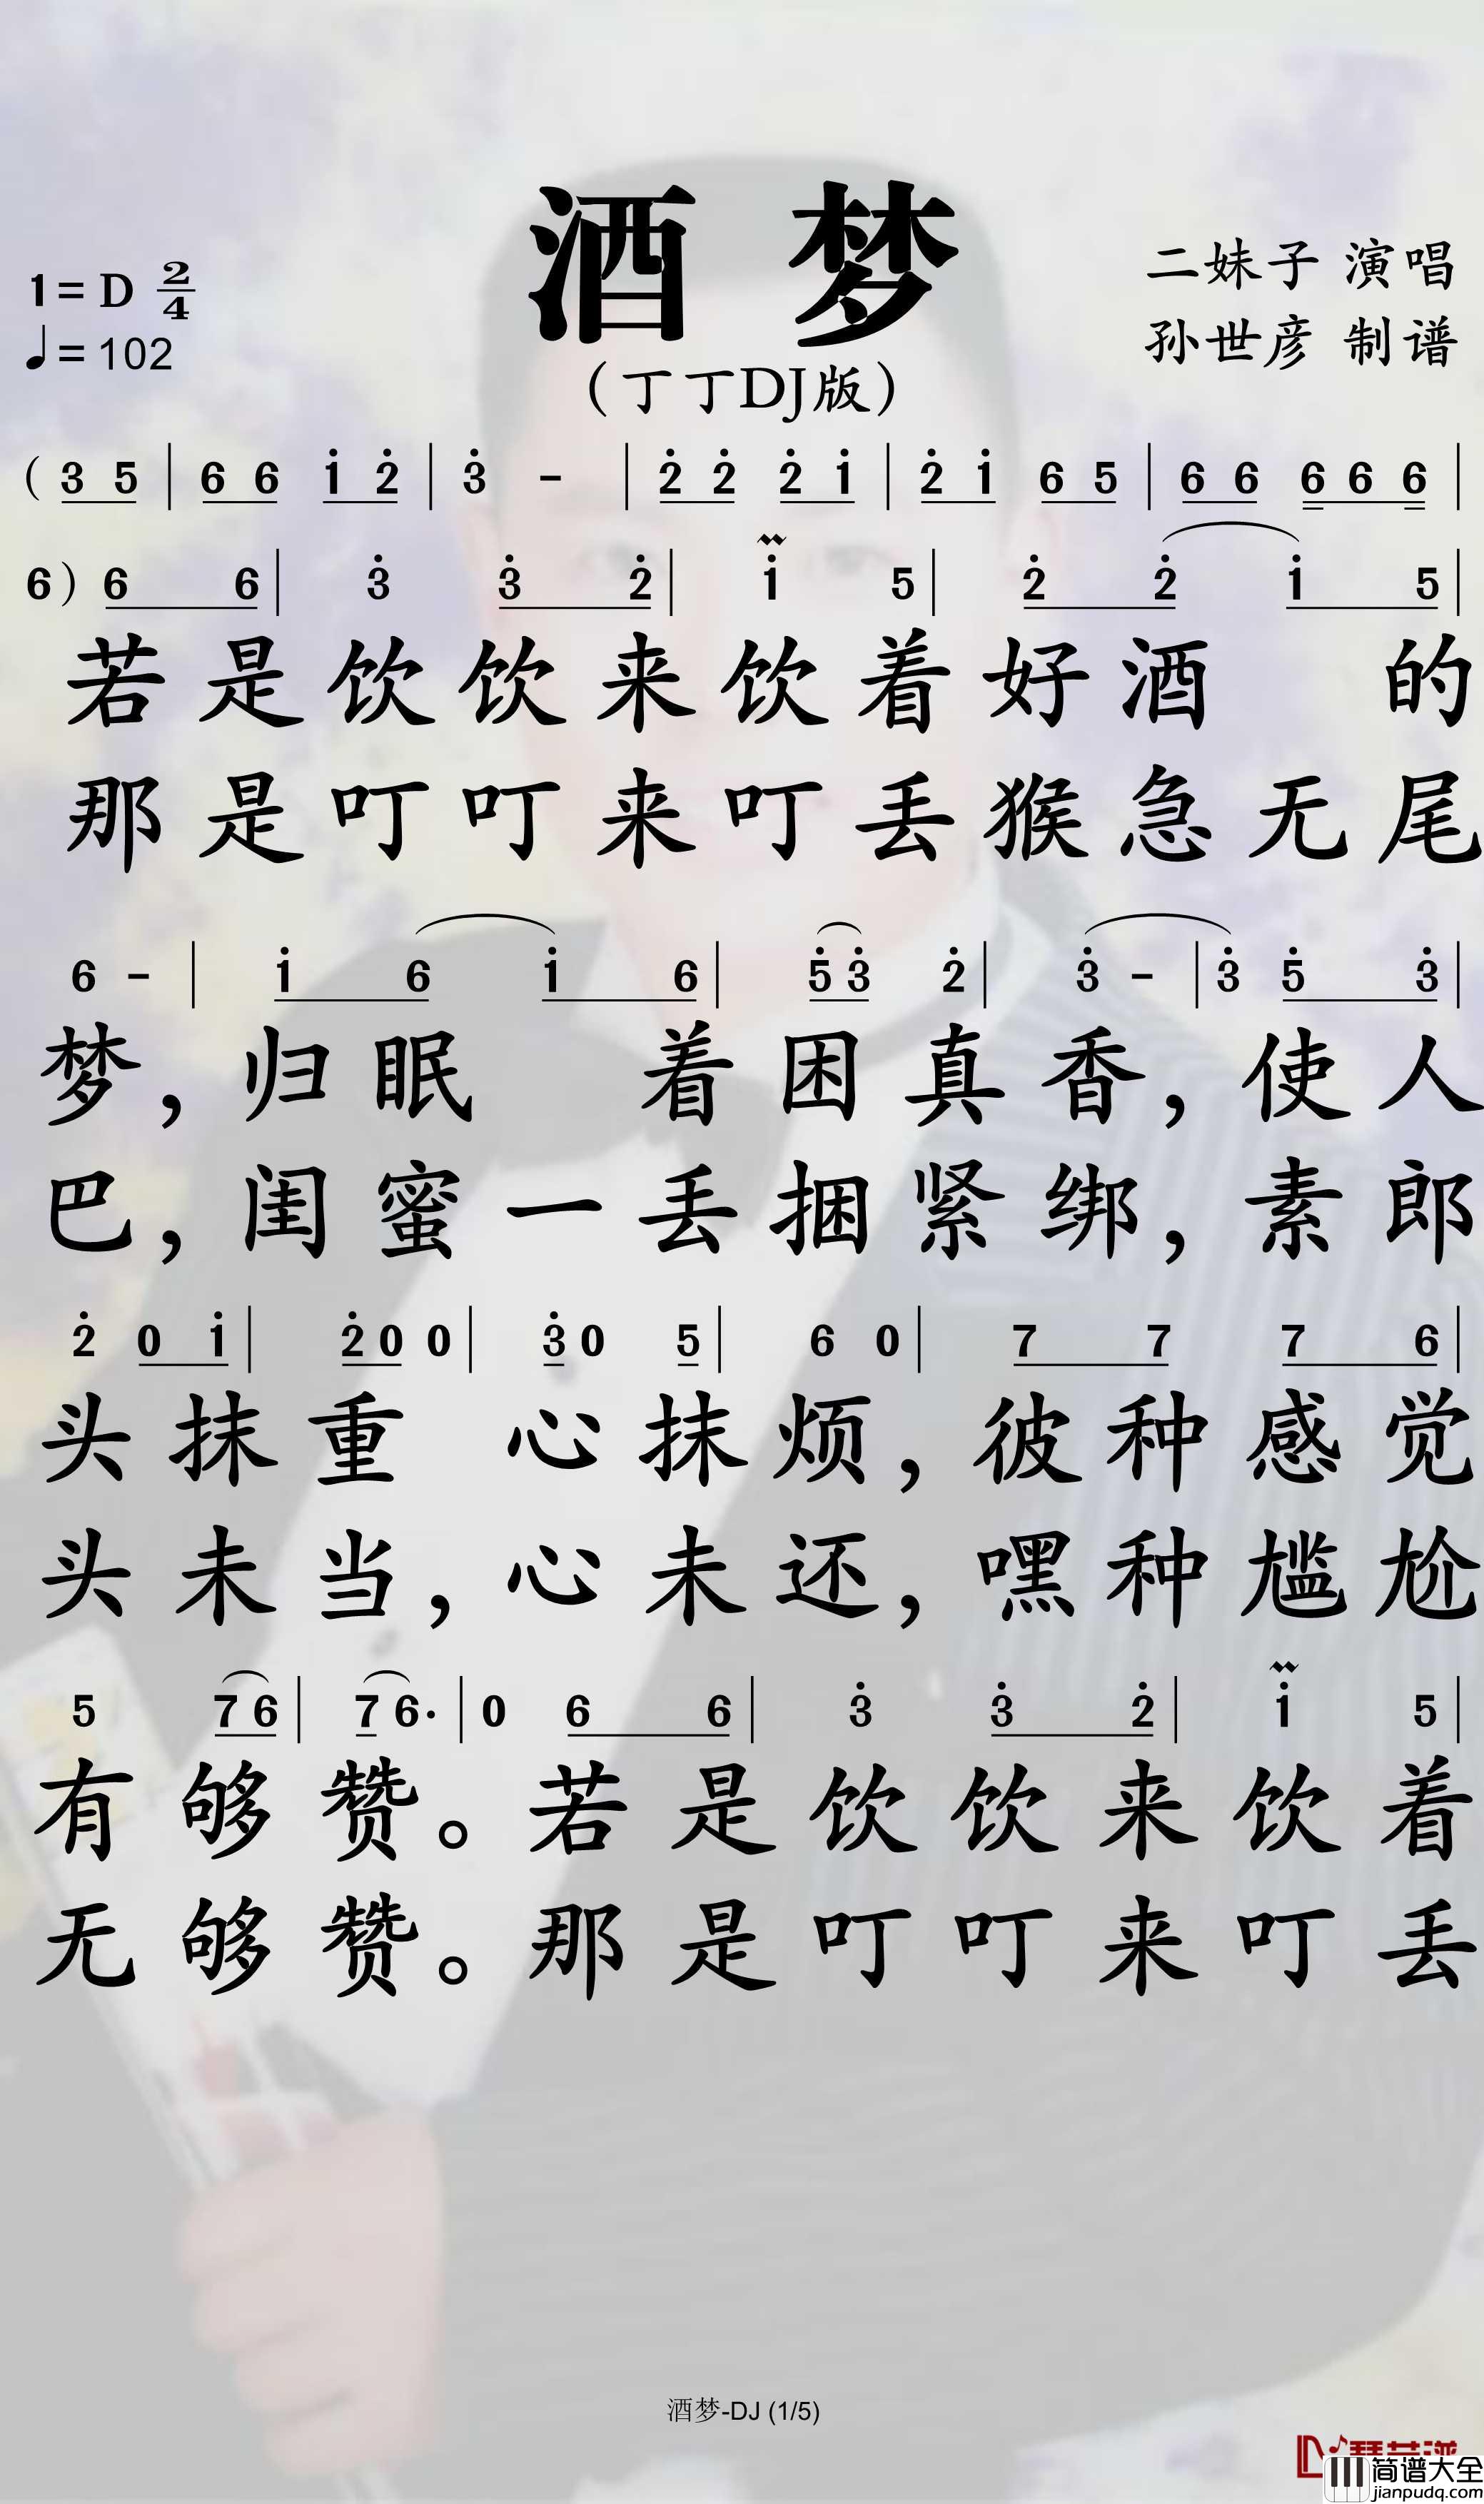 酒 梦
1=D 2/4
二妹子 演唱
♩=102
孙世彦 制谱
（丁丁DJ版）
( 3 5 | 6 6 i̇ 2̇ | 3̇ - | 2̇ 2̇ 2̇ i̇ | 2̇ i̇ 6 5 | 6 6 6̇ 6̇ 6̇ |
6 ) 6 6 | 3̇ 3̇ 2̇ | i̇ 5 | 2̇ 2̇ i̇ 5 |
若是饮饮来饮着好酒 的
那是叮叮来叮丢猴急无尾
6 - | i̇ 6 i̇ 6 | 5̇ 3̇ 2̇ | 3̇ - | 3̇ 5̇ 3̇ |
梦，归眠 着困真香，使人
巴，闺蜜一丢捆紧绑，素郎
2̇ 0 i̇ | 2̇ 0 0 | 3̇ 0 5 | 6 0 | 7 7 7 6 |
头抹重 心抹烦，彼种感觉
头未当，心未还，嘿种尴尬
5 7 6 | 7 6· | 0 6 6 | 3̇ 3̇ 2̇ | i̇ 5 |
有够赞。若是饮饮来饮着
无够赞。那是叮叮来叮丢
酒梦-DJ (1/5)
简谱大全
jianpudq.com